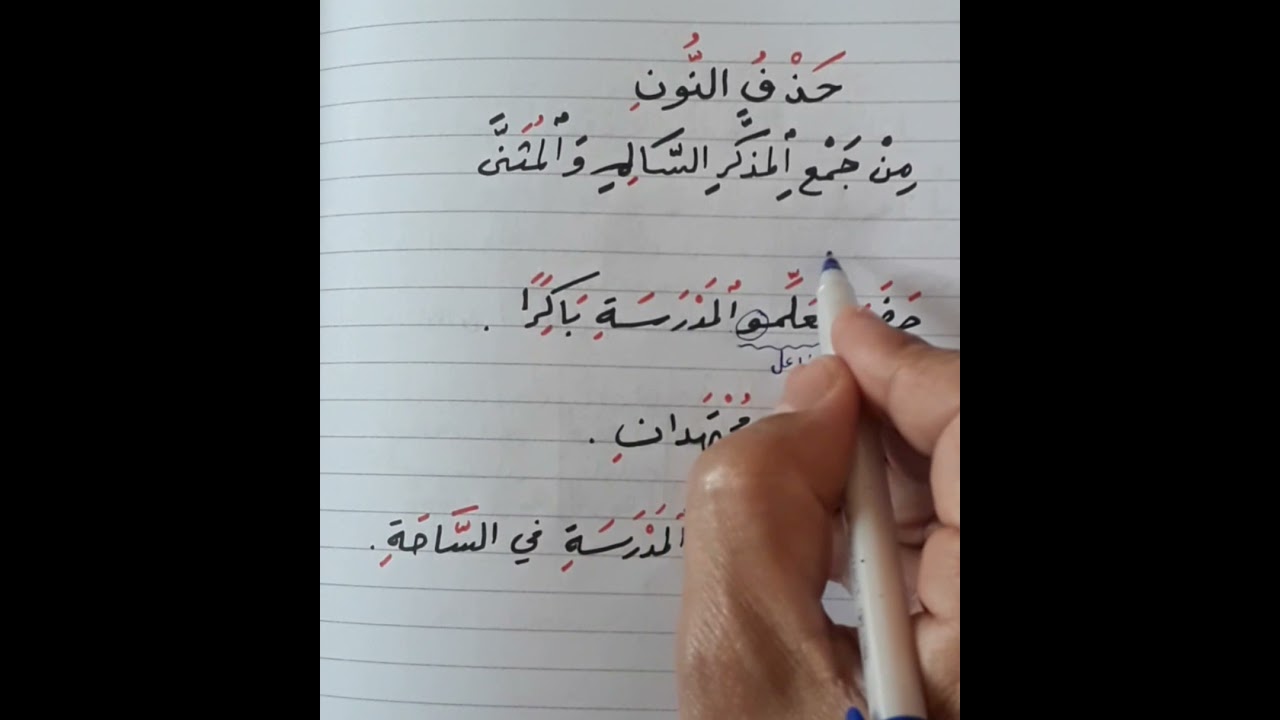 حَذْفُ النُّونِ
مِنْ جَمْعِ ٱلمذَكَّرِ السَّالِمِ وَٱلْمُثَنَّى
ٱلمَدْرَسَةِ بَاكِرًا .
مُجْتَهِدانِ .
ٱلمَدْرَسَةِ في السَّاحَةِ .